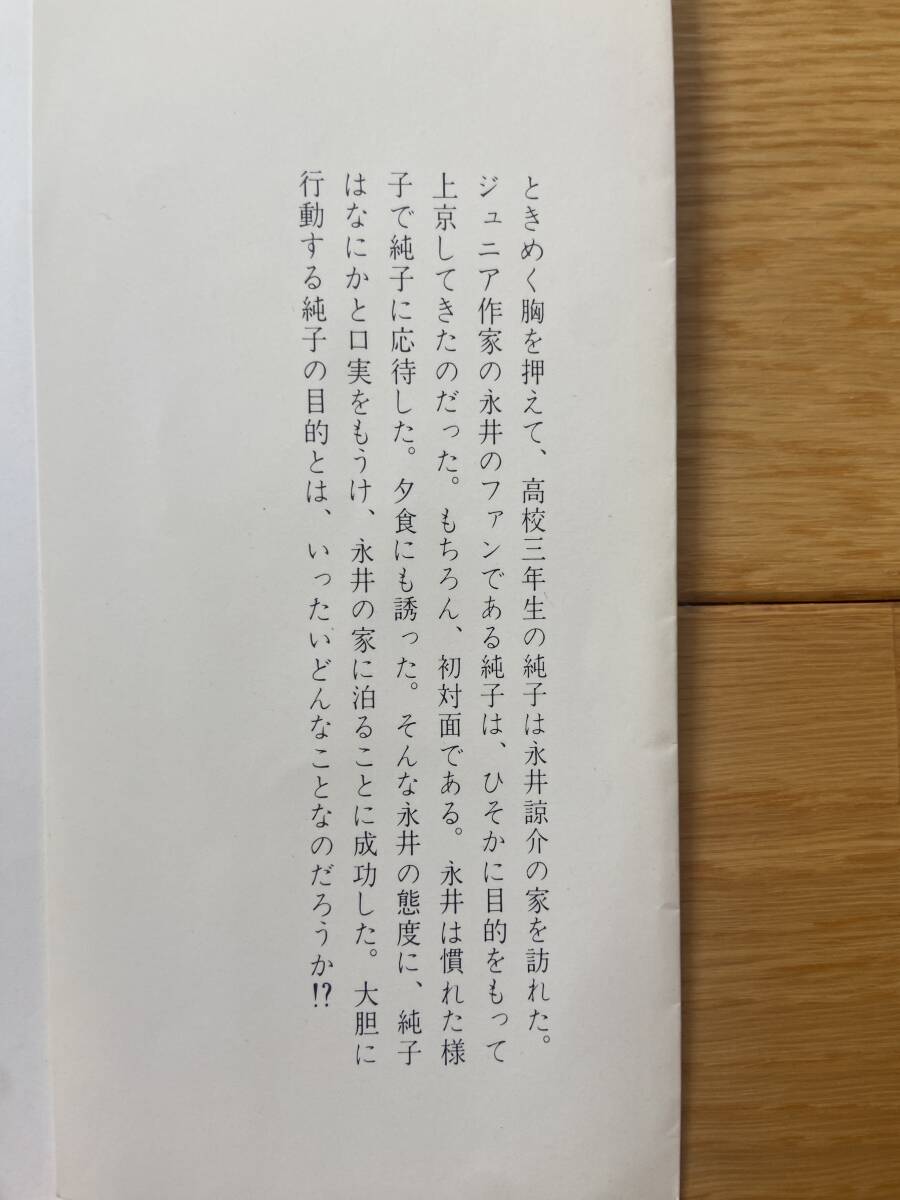 ときめく胸を押えて、高校三年生の純子は永井諒介の家を訪れた。
ジュニア作家の永井のファンである純子は、ひそかに目的をもって
上京してきたのだった。もちろん、初対面である。永井は慣れた様
子で純子に応待した。夕食にも誘った。そんな永井の態度に、純子
はなにかと口実をもうけ、永井の家に泊ることに成功した。大胆に
行動する純子の目的とは、いったいどんなことなのだろうか!?